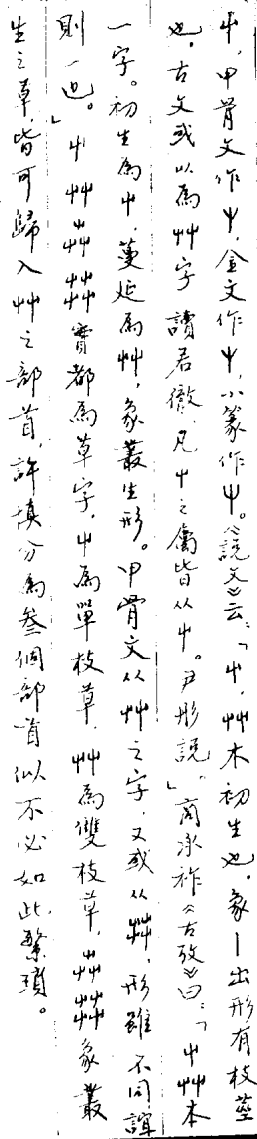 屮，甲骨文作屮，金文作屮，小篆作屮。《說文》云：「屮，艸木初生也，象丨出形有枝莖
也，古文或以為艸字讀若徹，凡屮之屬皆从屮。尹彤說。」商承祚《古攷》曰：「屮艸本
一字。初生為屮，蔓延為艸，象叢生形。甲骨文从艸之字，又或从茻，形雖不同誼
則一也。」屮艸芔茻實都為草字，屮為單枝草，艸為雙枝草，芔茻象叢
生之草，皆可歸入艸之部首，許慎分為叁個部首似不必如此繁瑣。